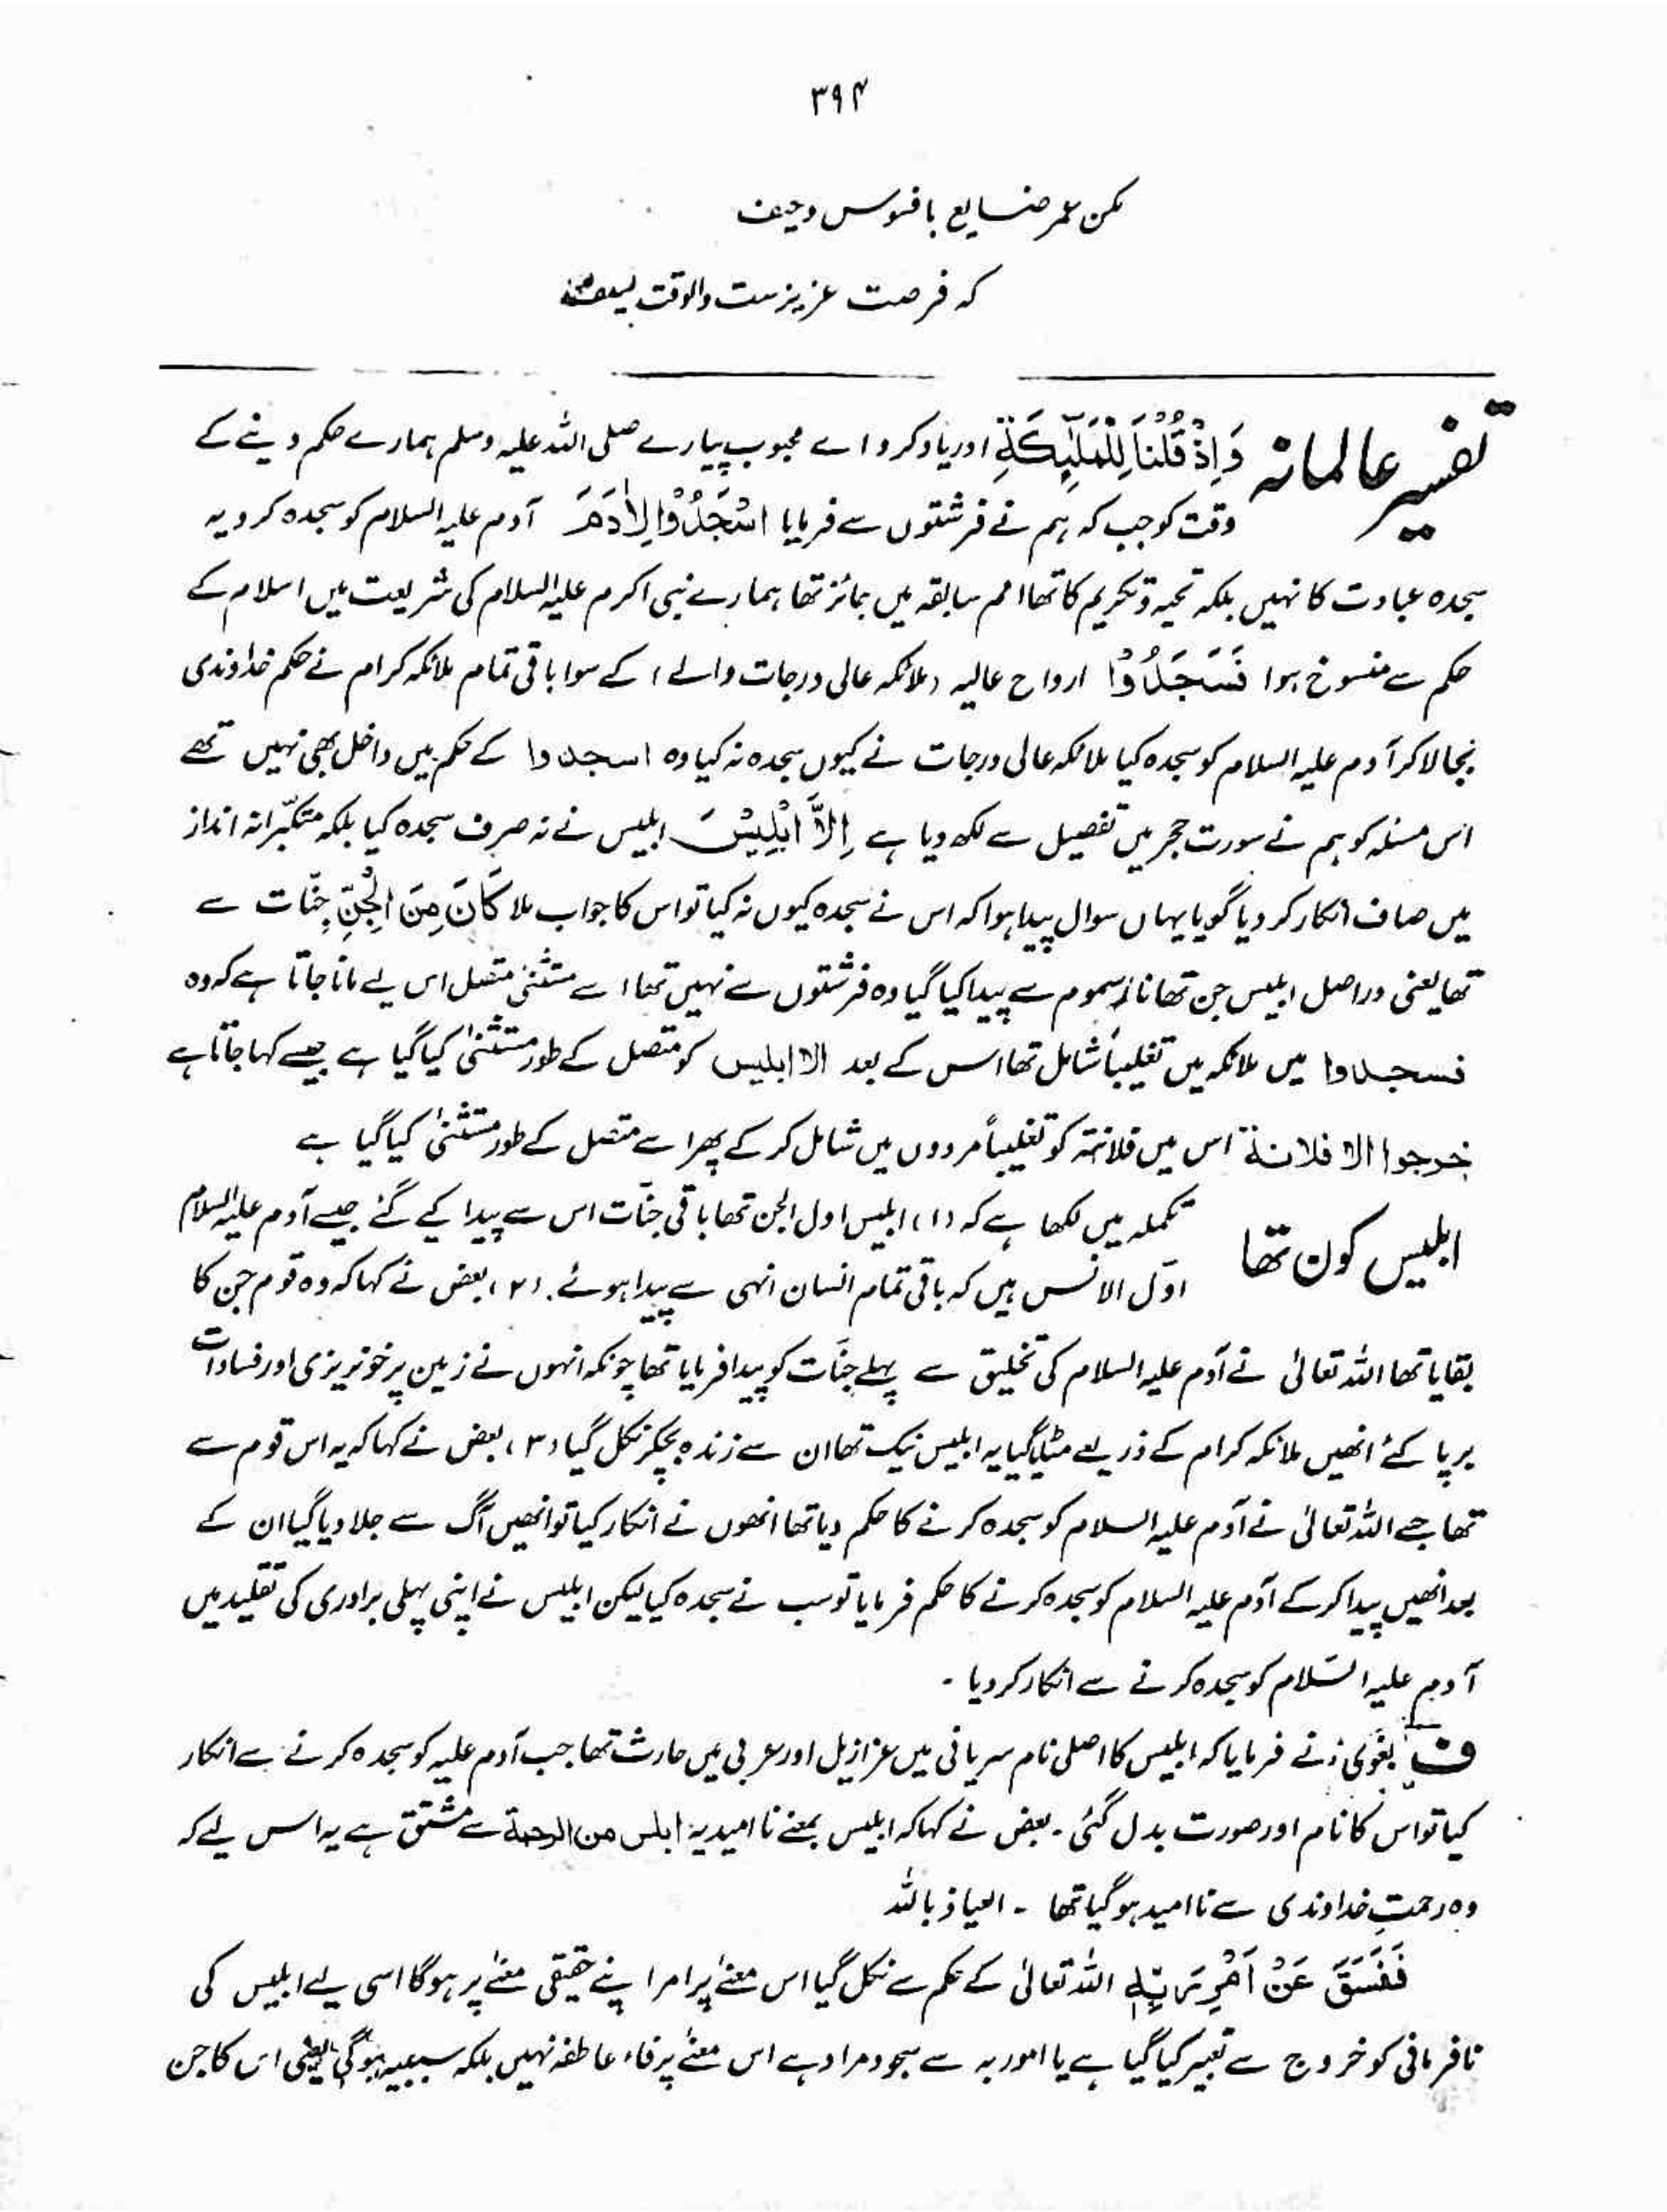 ۳۹۴
مکن عمر ضایع بافسوس وحیف
کہ فرصت عزیزست والوقت سیف
تفسیر عالمانہ وَاِذْ قُلْنَا لِلْمَلٰٓئِکَةِ اور یاد کرو اے محبوب پیارے صلی اللہ علیہ وسلم ہمارے حکم دینے کے
وقت کو جب کہ ہم نے فرشتوں سے فرمایا اسْجُدُوْا لِاٰدَمَ آدم علیہ السلام کو سجدہ کرو یہ
سجدہ عبادت کا نہیں بلکہ تحیہ وتکریم کا تھا امم سابقہ میں جائز تھا ہمارے نبی اکرم علیہ السلام کی شریعت میں اسلام کے
حکم سے منسوخ ہوا فَسَجَدُوْا ارواح عالیہ (ملائکہ عالی درجات والے) کے سوا باقی تمام ملائکہ کرام نے حکم خداوندی
بجا لا کر آدم علیہ السلام کو سجدہ کیا ملائکہ عالی درجات نے کیوں سجدہ نہ کیا وہ اسجدوا کے حکم میں داخل بھی نہیں تھے
اس مسئلہ کو ہم نے سورت حجر میں تفصیل سے لکھ دیا ہے اِلَّا اِبْلِیْسَ ابلیس نے نہ صرف سجدہ کیا بلکہ متکبّرانہ انداز
میں صاف انکار کر دیا گویا یہاں سوال پیدا ہوا کہ اس نے سجدہ کیوں نہ کیا تو اس کا جواب ملا کَانَ مِنَ الْجِنِّ جِنّات سے
تھا یعنی دراصل ابلیس جن تھا نار سموم سے پیدا کیا گیا وہ فرشتوں سے نہیں تھا اسے مستثنیٰ متصل اس لیے مانا جاتا ہے کہ وہ
فسجدوا میں ملائکہ میں تغلیباً شامل تھا اس کے بعد الا ابلیس کو متصل کے طور مستثنیٰ کیا گیا ہے جیسے کہا جاتا ہے
خرجوا الا فلانة اس میں فلانتہ کو تغلیباً مردوں میں شامل کر کے پھر اسے متصل کے طور مستثنیٰ کیا گیا ہے
ابلیس کون تھا تکملہ میں لکھا ہے کہ (۱) ابلیس اول الجن تھا باقی جنّات اس سے پیدا کیے گئے جیسے آدم علیہ السلام
اوّل الانس ہیں کہ باقی تمام انسان انہی سے پیدا ہوئے۔ (۲) بعض نے کہا کہ وہ قوم جن کا
بقایا تھا اللہ تعالیٰ نے آدم علیہ السلام کی تخلیق سے پہلے جنّات کو پیدا فرمایا تھا چونکہ انہوں نے زمین پر خونریزی اور فسادات
برپا کئے انھیں ملائکہ کرام کے ذریعے مٹایا گیا یہ ابلیس نیک تھا ان سے زندہ بچکر نکل گیا (۳) بعض نے کہا کہ یہ اس قوم سے
تھا جسے اللہ تعالیٰ نے آدم علیہ السلام کو سجدہ کرنے کا حکم دیا تھا انھوں نے انکار کیا تو انھیں آگ سے جلا دیا گیا ان کے
بعد انھیں پیدا کر کے آدم علیہ السلام کو سجدہ کرنے کا حکم فرمایا تو سب نے سجدہ کیا لیکن ابلیس نے اپنی پہلی برادری کی تقلید میں
آدم علیہ السّلام کو سجدہ کرنے سے انکار کر دیا ۔
ف بغوی نے فرمایا کہ ابلیس کا اصلی نام سریانی میں عزازیل اور عربی میں حارث تھا جب آدم علیہ کو سجدہ کرنے سے انکار
کیا تو اس کا نام اور صورت بدل گئی ۔ بعض نے کہا کہ ابلیس بمعنے نا امید یہ ابلس من الرحمة سے مشتق ہے یہ اس لیے کہ
وہ رحمتِ خداوندی سے نا امید ہو گیا تھا ۔ العیاذ باللہ
فَفَسَقَ عَنْ اَمْرِ رَبِّهٖ اللہ تعالیٰ کے حکم سے نکل گیا اس معنے پر امر اپنے حقیقی معنے پر ہوگا اسی لیے ابلیس کی
نافرمانی کو خروج سے تعبیر کیا گیا ہے یا امور بہ سے سجود مراد ہے اس معنے پر فاء عاطفہ نہیں بلکہ سببیہ ہوگی یعنی اس کا جن